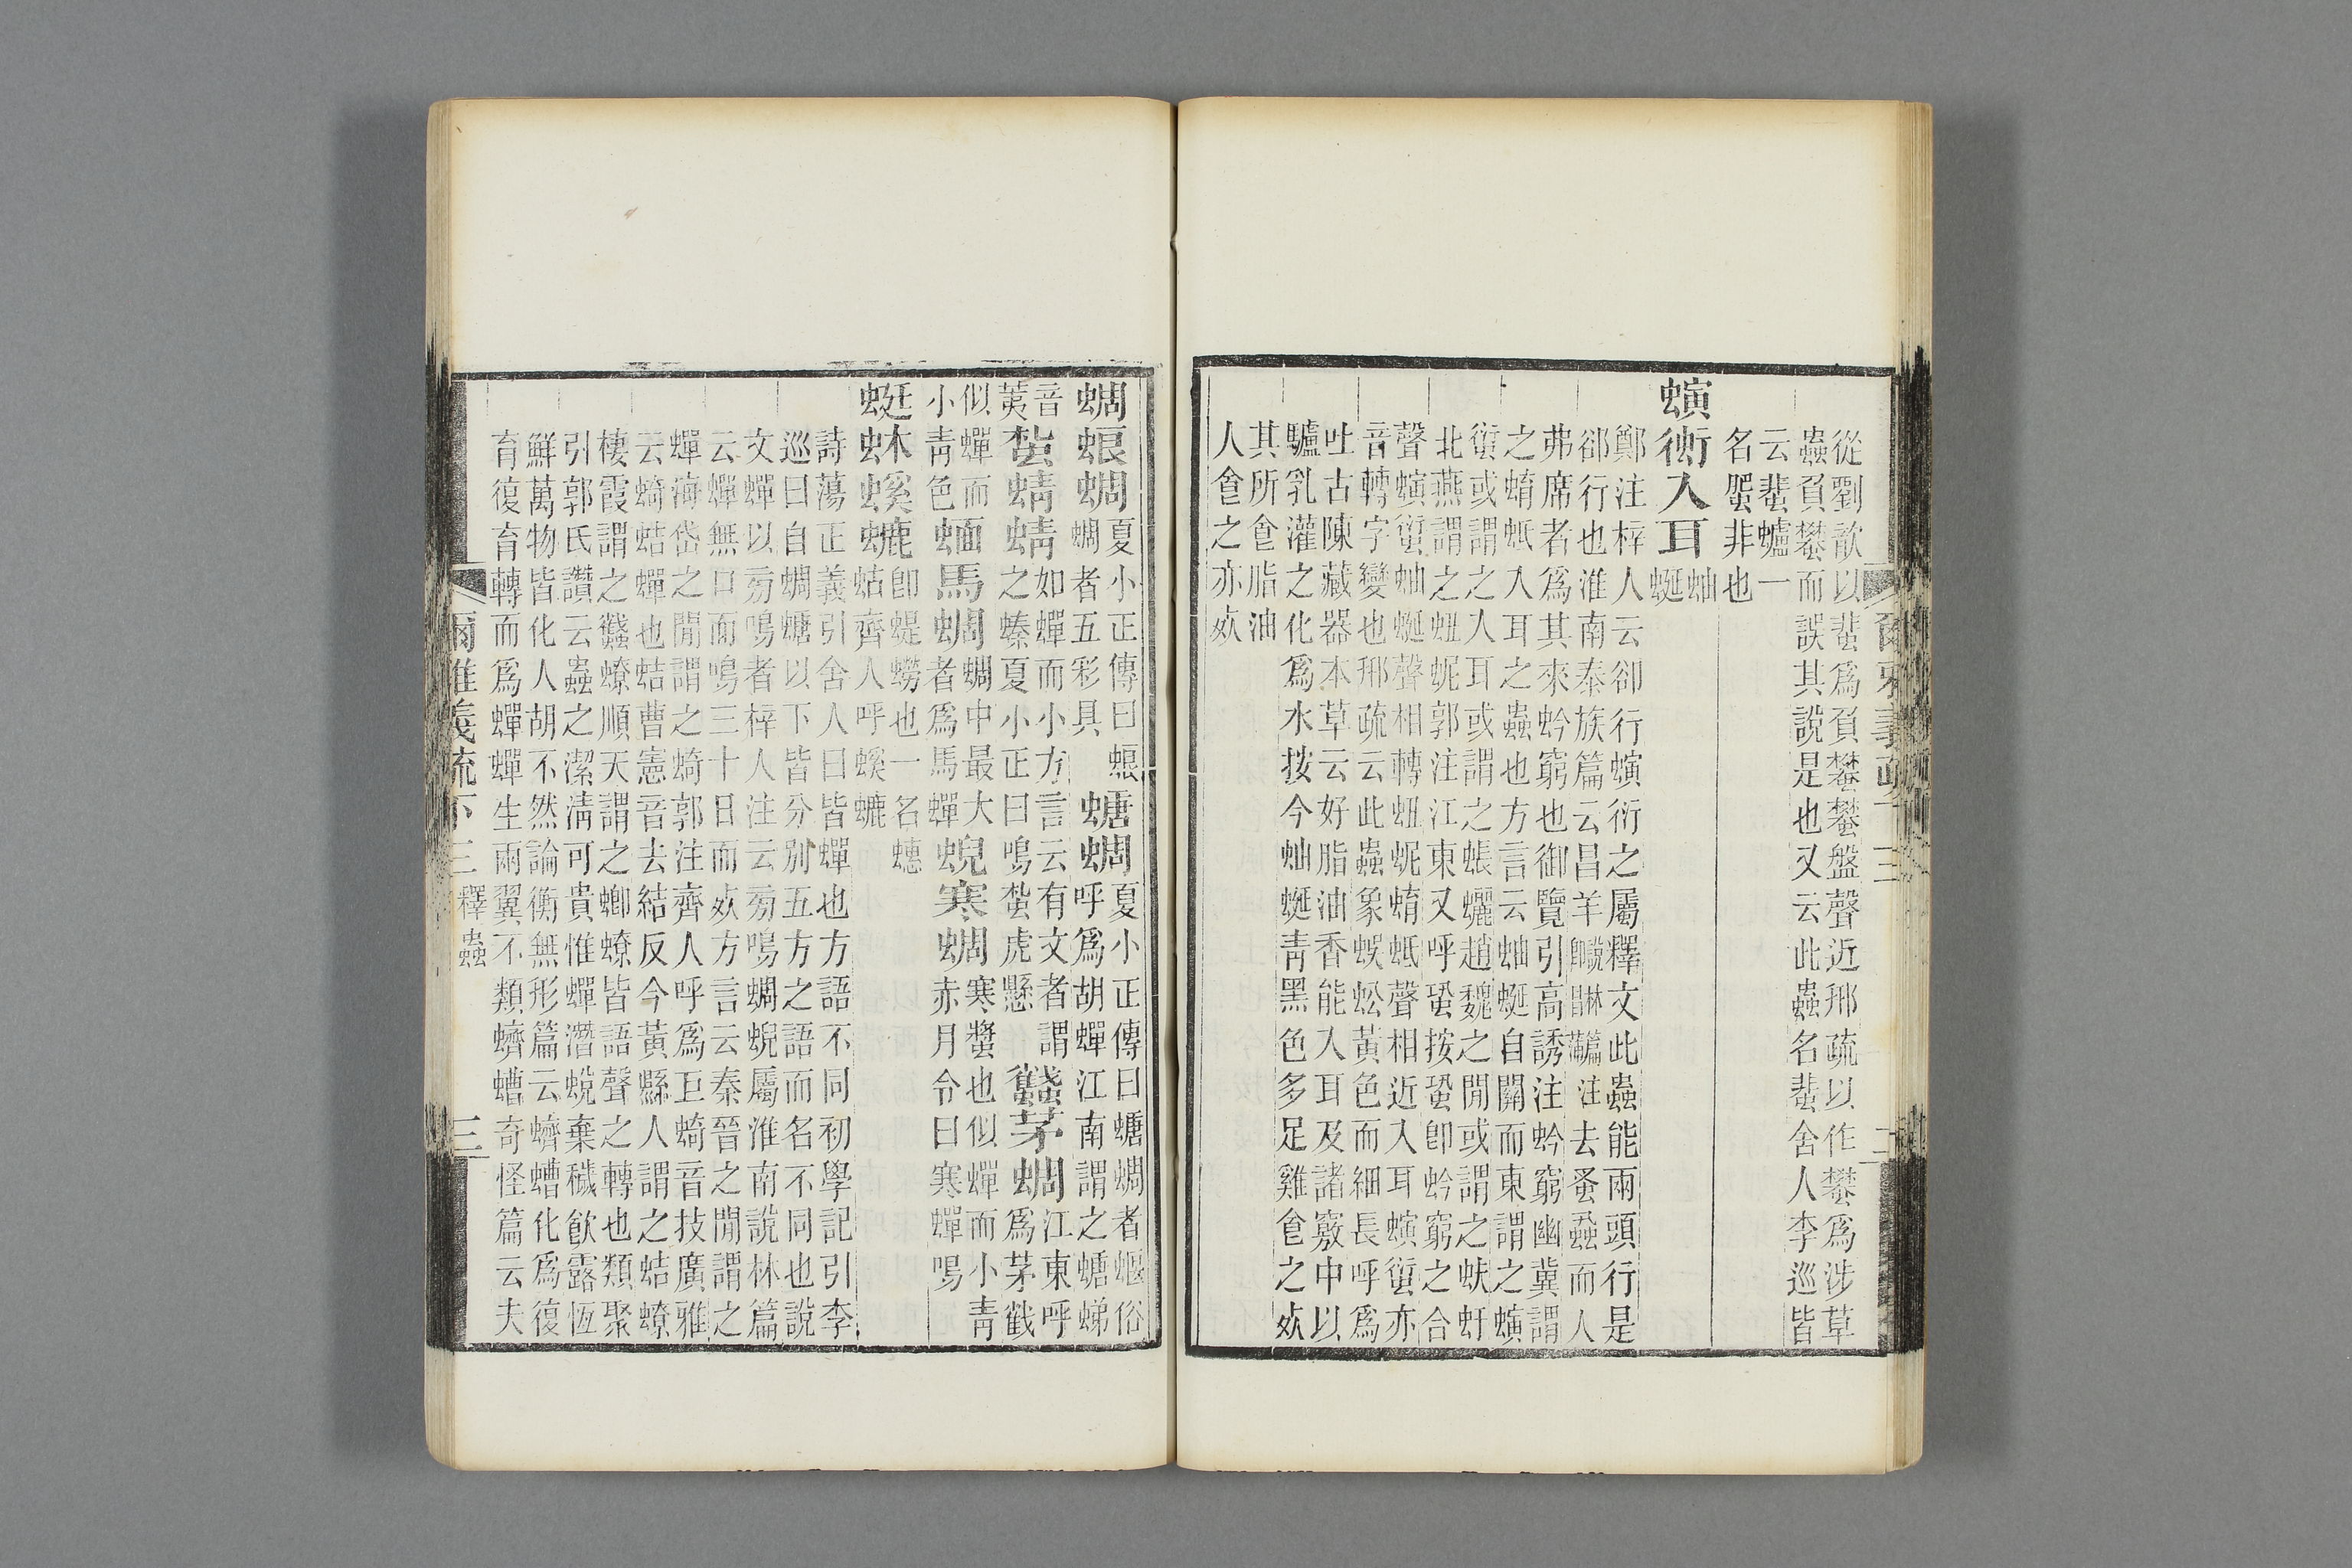 從劉歆以蜚爲負蠜蠜盤聲近邢疏以作蠜爲涉草
蟲負蠜而誤其說是也又云此蟲名蜚舍人李巡皆
云蜚蠦一
名蜰非也
螾𧊔入耳
蚰
蜒
鄭注梓人云卻行螾衍之屬釋文此蟲能兩頭行是
郤行也淮南泰族篇云昌羊去蚤蝨而人
弗席者爲其來蛉窮也御覽引高誘注蛉窮幽冀謂
之蝫蚔入耳之蟲也方言云蚰蜒自關而東謂之螾
𧍢或謂之入耳或謂之蜄蠼趙魏之閒或謂之蚨虶
北燕謂之蚭蚭郭注江東又呼蛩按蛩卽蛉窮之合
聲螾𧍢蚰蜒聲相轉蚭蚭蝫蚔聲相近入耳螾𧍢亦
音轉字變也邢疏云此蟲象蜈蚣黃色而細長呼爲
吐古陳藏器本草云好脂油香能入耳及諸竅中以
驢乳灌之化爲水按今蚰蜒靑黑色多足雞食之㱙
其所食脂油
人食之亦㱙
蜩蜋蜩
夏小正傳曰蜋
蜩者五彩具
螗蜩
夏小正傳曰螗蜩者蝘俗
呼爲胡蟬江南謂之螗蛦
音
荑
蚻蜻蜻
如蟬而小方言云有文者謂
之螓夏小正曰鳴蚻虎懸
蠽茅蜩
江東呼
爲茅截
似蟬而
小靑色
蝒馬蜩
蜩中最大
者爲馬蟬
蜺寒蜩
寒螿也似蟬而小靑
赤月令曰寒蟬鳴
蜓蚞螇螰
卽蝭蟧也一名蟪
蛄齊人呼螇螰
詩蕩正義引舍人曰皆蟬也方語不同初學記引李
巡曰自蜩螗以下皆分別五方之語而名不同也說
文蟬以旁鳴者梓人注云旁鳴蜩蜺屬淮南說林篇
云蟬無口而鳴三十日而㱙方言云秦晉之閒謂之
蟬海岱之閒謂之蛴郭注齊人呼爲巨蛴音技廣雅
云蛴蛣蟬也蛣曹憲音去結反今黃縣人謂之蛣蟟
棲霞謂之蠽蟟順天謂之螂蟟皆語聲之轉也類聚
引郭氏讚云蟲之潔清可貴惟蟬潛蛻棄穢飮露恆
鮮萬物皆化人胡不然論衡無形篇云蠐螬化爲復
育復育轉而爲蟬蟬生兩翼不類蠐螬奇怪篇云夫
爾雅義疏下三釋蟲
三